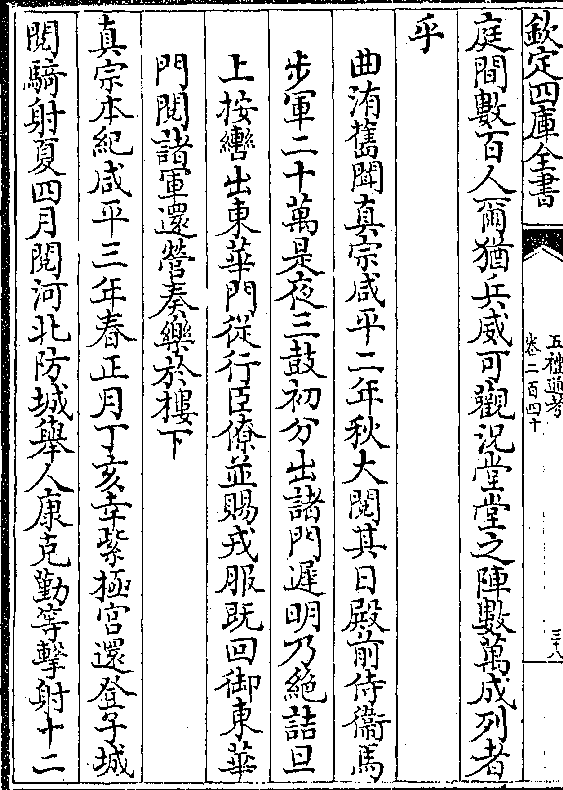 欽定四庫全書
五禮通考
卷二百四十
三八
庭間數百人爾猶兵威可觀況堂堂之陣數萬成列者
乎
曲洧舊聞真宗咸平二年秋大閱其日殿前侍衞馬
步軍二十萬是夜三鼓初分出諸門遲明乃絶詰旦
上按轡出東華門從行臣僚並賜戎服既回御東華
門閱諸軍還營奏樂於樓下
真宗本紀咸平三年春正月丁亥幸紫極宮還登子城
閱騎射夏四月閱河北防城舉人康克勤等擊射十二